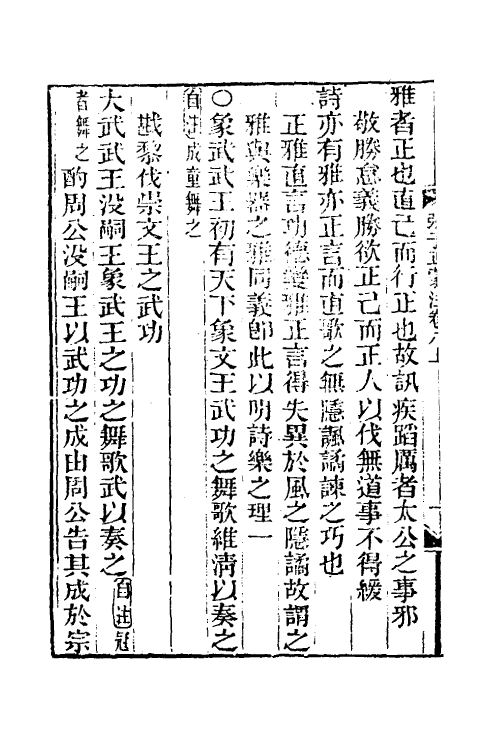 雅者正也直己而行正也故訊疾蹈厲者太公之事邪
敬勝怠義勝欲正己而正人以伐無道事不得緩
詩亦有雅亦正言而直歌之無隱諷譎諫之巧也
正雅直言功德變雅正言得失異於風之隱譎故謂之
雅與樂器之雅同義卽此以明詩樂之理一
○象武武王初有天下象文王武功之舞歌維清以奏之
自註成童舞之
戡黎伐崇文王之武功
大武武王没嗣王象武王之功之舞歌武以奏之自註冠
者舞之酌周公没嗣王以武功之成由周公告其成於宗